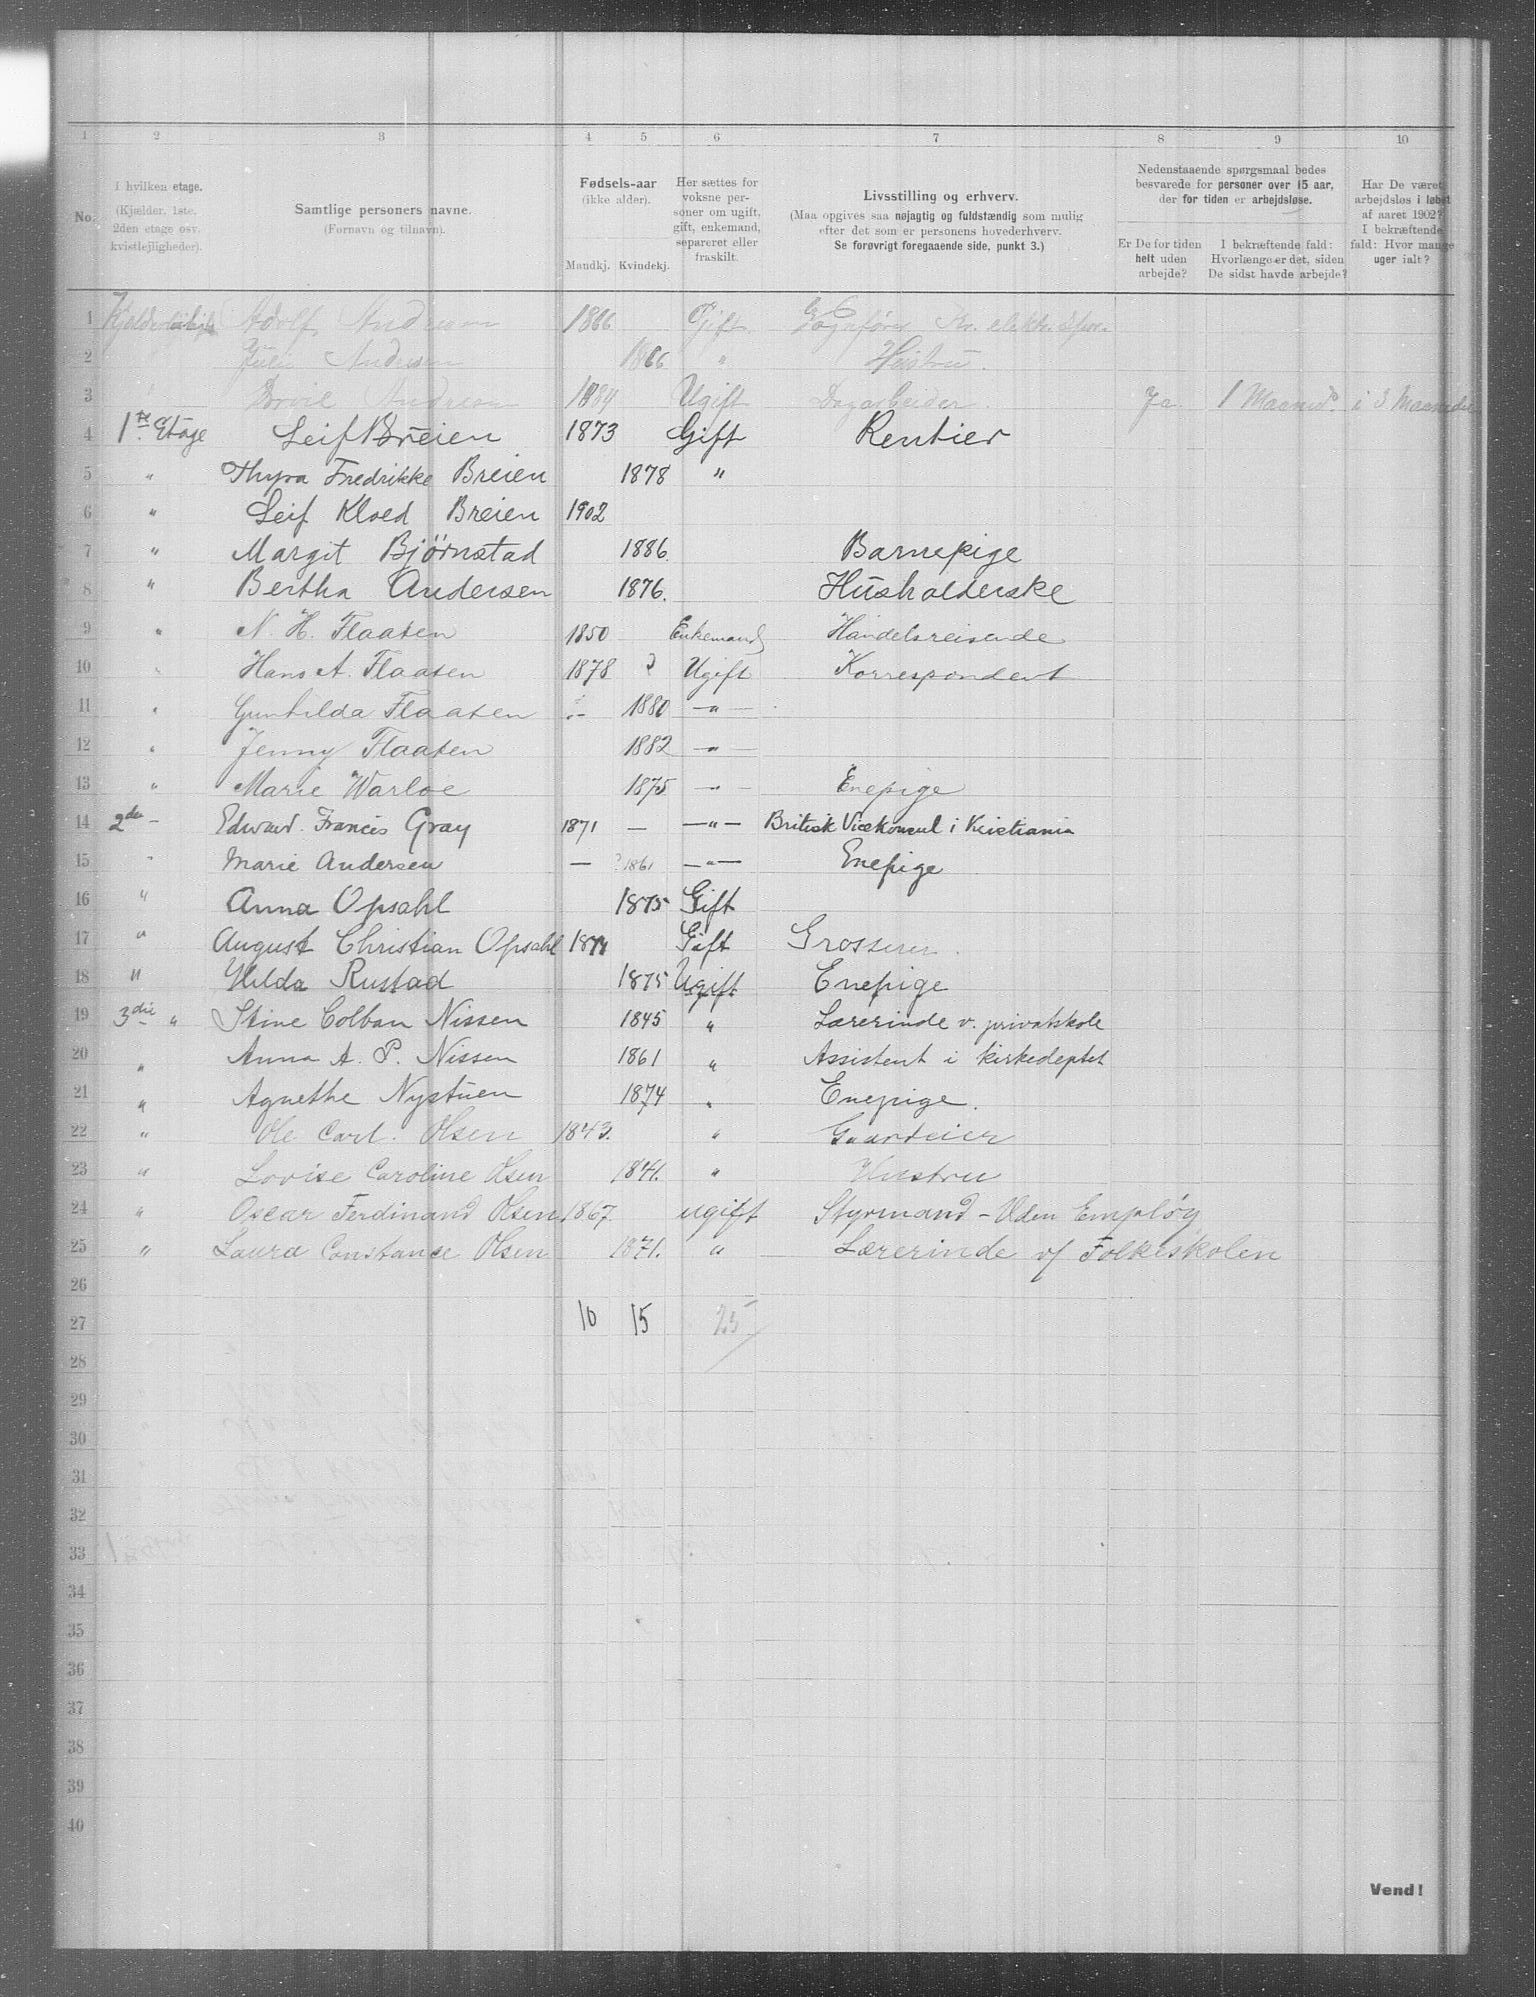 1 2 3 4 5 6 7 8 9 10
No.
I hvilken etage.
(Kjælder, 1ste.
2den etage osv.
kvistlejligheder).
Samtlige personers navne.
(Fornavn og tilnavn).
Fødsels-aar
(ikke alder).
Mandkj. Kvindekj.
Her sættes for
voksne per-
soner om ugift,
gift, enkemand,
separeret eller
fraskilt.
Livsstilling og erhverv.
(Maa opgives saa nøjagtig og fuldstændig som mulig
efter det som er personens hovederhverv.
Se forøvrigt foregaaende side, punkt 3.)
Nedenstaaende spørgsmaal bedes
besvarede for personer over 15 aar,
der for tiden er arbejdsløse.
Er De for tiden
helt uden
arbejde?
I bekræftende fald:
Hvorlænge er det, siden
De sidst havde arbejde?
Har De været
arbejdsløs i løbet
af aaret 1902?
I bekræftende
fald: Hvor mange
uger ialt?
1 Adolf Andresen 1866 Gift Vognfører Kr. elektr. Spor.
2 Julie Andresen 1866 " Hustru.
3 Andresen 1884 Ugift Dagarbeider. Ja 1 Maaned. i 3 Maaneder
4 1ste Etage Leif Breien 1873 Gift Rentier
5 " Thyra Fredrikke Breien 1878 "
6 " Leif Kloed Breien 1902
7 " Margit Bjørnstad 1886. Barnepige
8 " Bertha Andersen 1876. Husholderske
9 " N. H. Flaaten 1850 Enkemand Handelsreisende
10 " Hans A. Flaaten 1878 Ugift Korrespondent
11 " Gunhilda Flaaten 1880 — " —
12 " Jenny Flaaten 1882 — " —
13 " Marie Warloe 1875 — " — Enepige
14 2den — Edward Francis Gray 1871 — — " — Britisk Vicekonsul i Kristiania
15 " Marie Andersen — ? 1861 — " — Enepige
16 " Anna Opsahl 1875 Gift
17 " August Christian Opsahl Gift Grosserer.
18 " Hilda Rustad 1875 Ugift Enepige
19 3die " Stine Colban Nissen 1845 " Lærerinde v. privatskole
20 " Anna A. P. Nissen 1861 " Assistent i kirkedeptet
21 " Agnethe Nystuen 1874 " Enepige.
22 " Ole Carl. Olsen 1843. " Gaardeier
23 " Lovise Caroline Olsen 1841. " Hustru
24 " Oscar Ferdinand Olsen 1867. ugift Styrmand - Uden Empløy
25 " Laura Constance Olsen 1871. " Lærerinde v/ Folkeskolen
26
27 10 15 25
28
29
30
31
32
33
34
35
36
37
38
39
40
Vend!